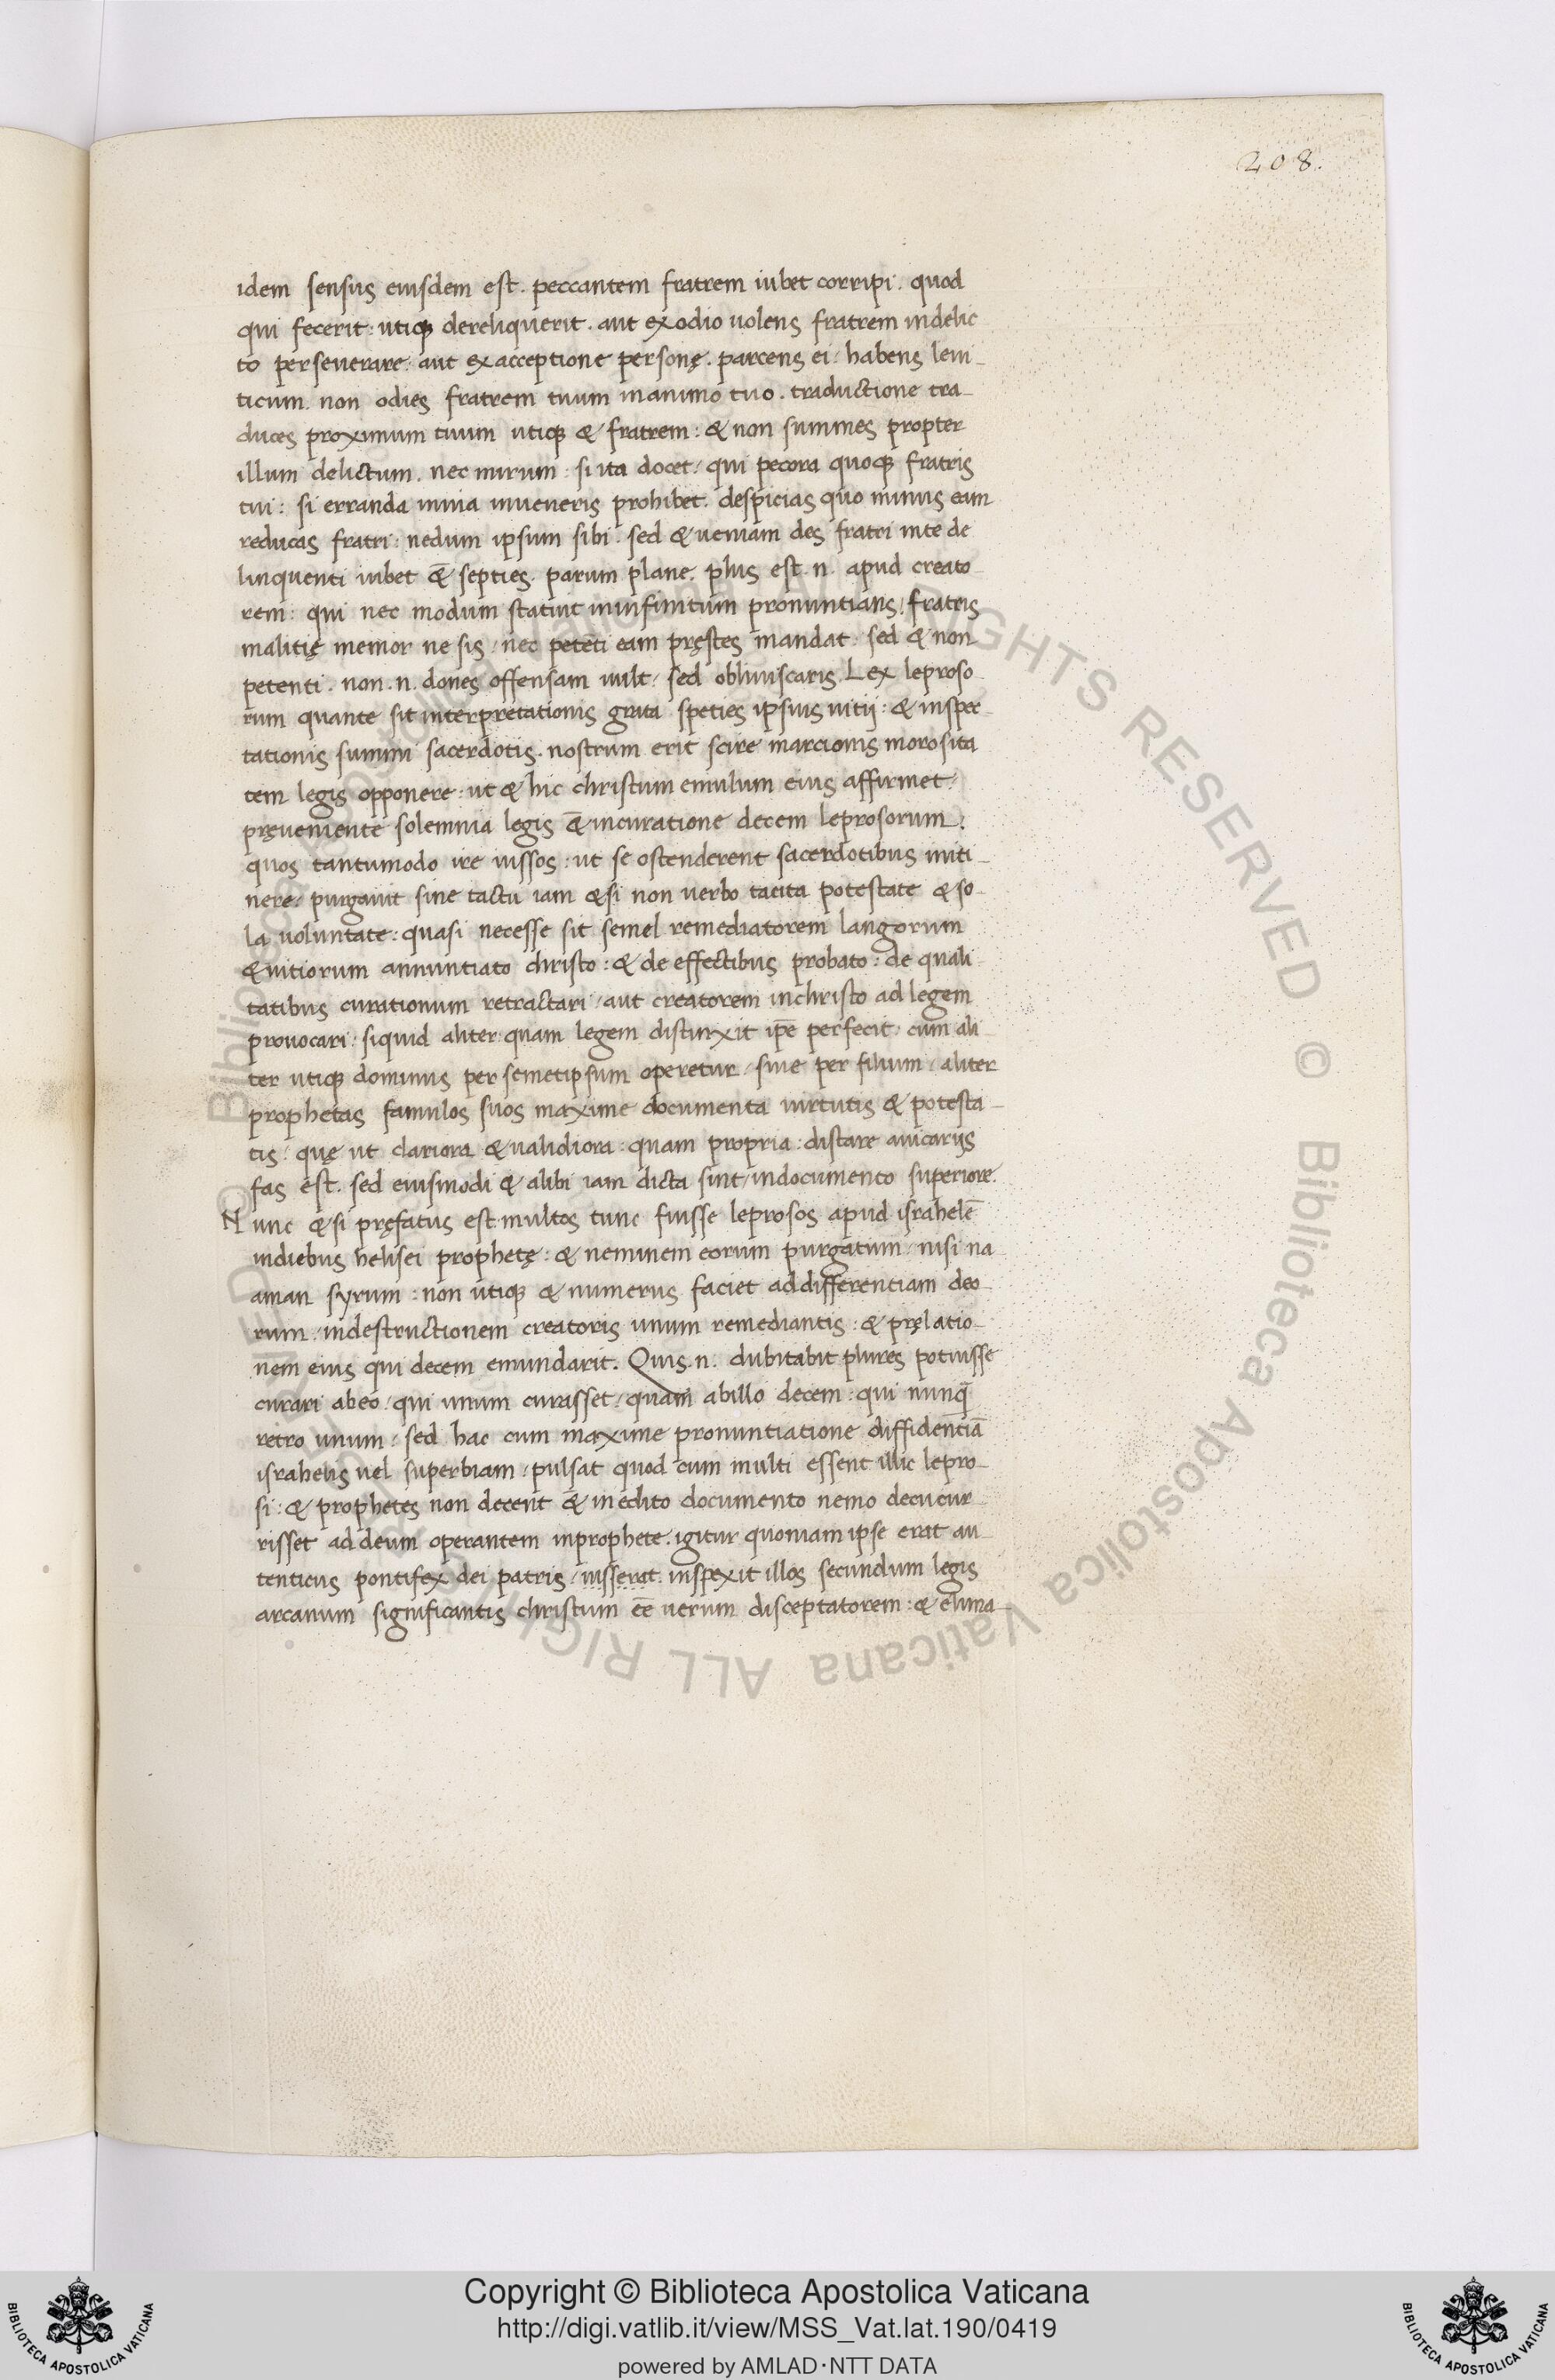 208.
idem sensus eiusdem est. peccantem fratrem iubet corripi. quod
qui fecerit: utiqꝫ dereliquerit. aut exodio uolens fratrem indelic
to perseuerare: aut exacceptione personę. parcens ei: habens leui-
ticum. non odies fratrem tuum inanimo tuo. traductione tra-
duces proximum tuum utiqꝫ & fratrem: & non summes propter
illum delictum. nec mirum: si ita docet: qui pecora quoqꝫ fratris
tui: si erranda inuia inueneris prohibet. despicias quo minus eam
reducas fratri: nedum ipsum sibi. sed & ueniam des fratri inte de
linquenti iubet &̄ septies. parum plane. plus est .n. apud creato-
rem: qui nec modum statuit ininfinitum pronuntians: fratris
malitię memor ne sis: nec petēti eam pręstes mandat: sed & non
petenti. non .n. dones offensam uult: sed obliuiscaris. Lex leproso-
rum quante sit interpretationis grata speties ipsius uitij: & inspec-
tationis summi sacerdotis. nostrum erit scire marcionis morosita
tem legis opponere: ut & hic christum emulum eius affirmet:
pręueniente solemnia legis &̄ incuratione decem leprosorum:
quos tantumodo ire iussos: ut se ostenderent sacerdotibus initi-
nere: purgauit sine tactu iam & si non uerbo tacita potestate & so-
la uoluntate: quasi necesse sit semel remediatorem langorum
& uitiorum annuntiato christo: & de effectibus probato: de quali
tatibus curationum retractari: aut creatorem inchristo ad legem
prouocari: siquid aliter quam legem disturxit ip̄e perfecit: cum ali-
ter utiqꝫ dominus per semetipsum operetur: siue per filium: aliter
prophetas famulos suos maxime documenta uirtutis & potesta-
tis: quę ut clariora & ualidiora: quam propria: distare auicarijs
fas est. sed eiusmodi & alibi iam dicta sint: indocumento superiore.
Nunc & si pręfatus est multos tunc fuisse leprosos apud israhelē
indiebus helisei prophetę: & neminem eorum purgatum: nisi na
aman syrum: non utiqꝫ & numerus faciet addifferentiam deo-
rum: indestructionem creatoris unum remediantis: & pręlatio-
nem eius qui decem emundarit. Quis .n. dubitabit plures potuisse
curari abeo: qui unum curasset: quam abillo decem: qui nunq̄
retro unum: sed hac cum maxime pronuntiatione diffidentiā
israhelis uel superbiam: pulsat quod cum multi essent illic lepro-
si: & prophetes non decerit &̄ inedito documento nemo decucur-
risset ad deum operantem inprophete. igitur quoniam ipse erat au-
tenticus pontifex dei patris: iusserat. inspexit illos secundum legis
arcanum significantis christum eē uerum disceptatorem: & elima-
Copyright © Biblioteca Apostolica Vaticana
http://digi.vatlib.it/view/MSS_Vat.lat.190/0419
powered by AMLAD·NTT DATA
BIBLIOTECA APOSTOLICA VATICANA
BIBLIOTECA APOSTOLICA VATICANA
© Biblioteca Apostolica Vaticana ALL RIGHTS RESERVED
© Biblioteca Apostolica Vaticana ALL RIGHTS RESERVED